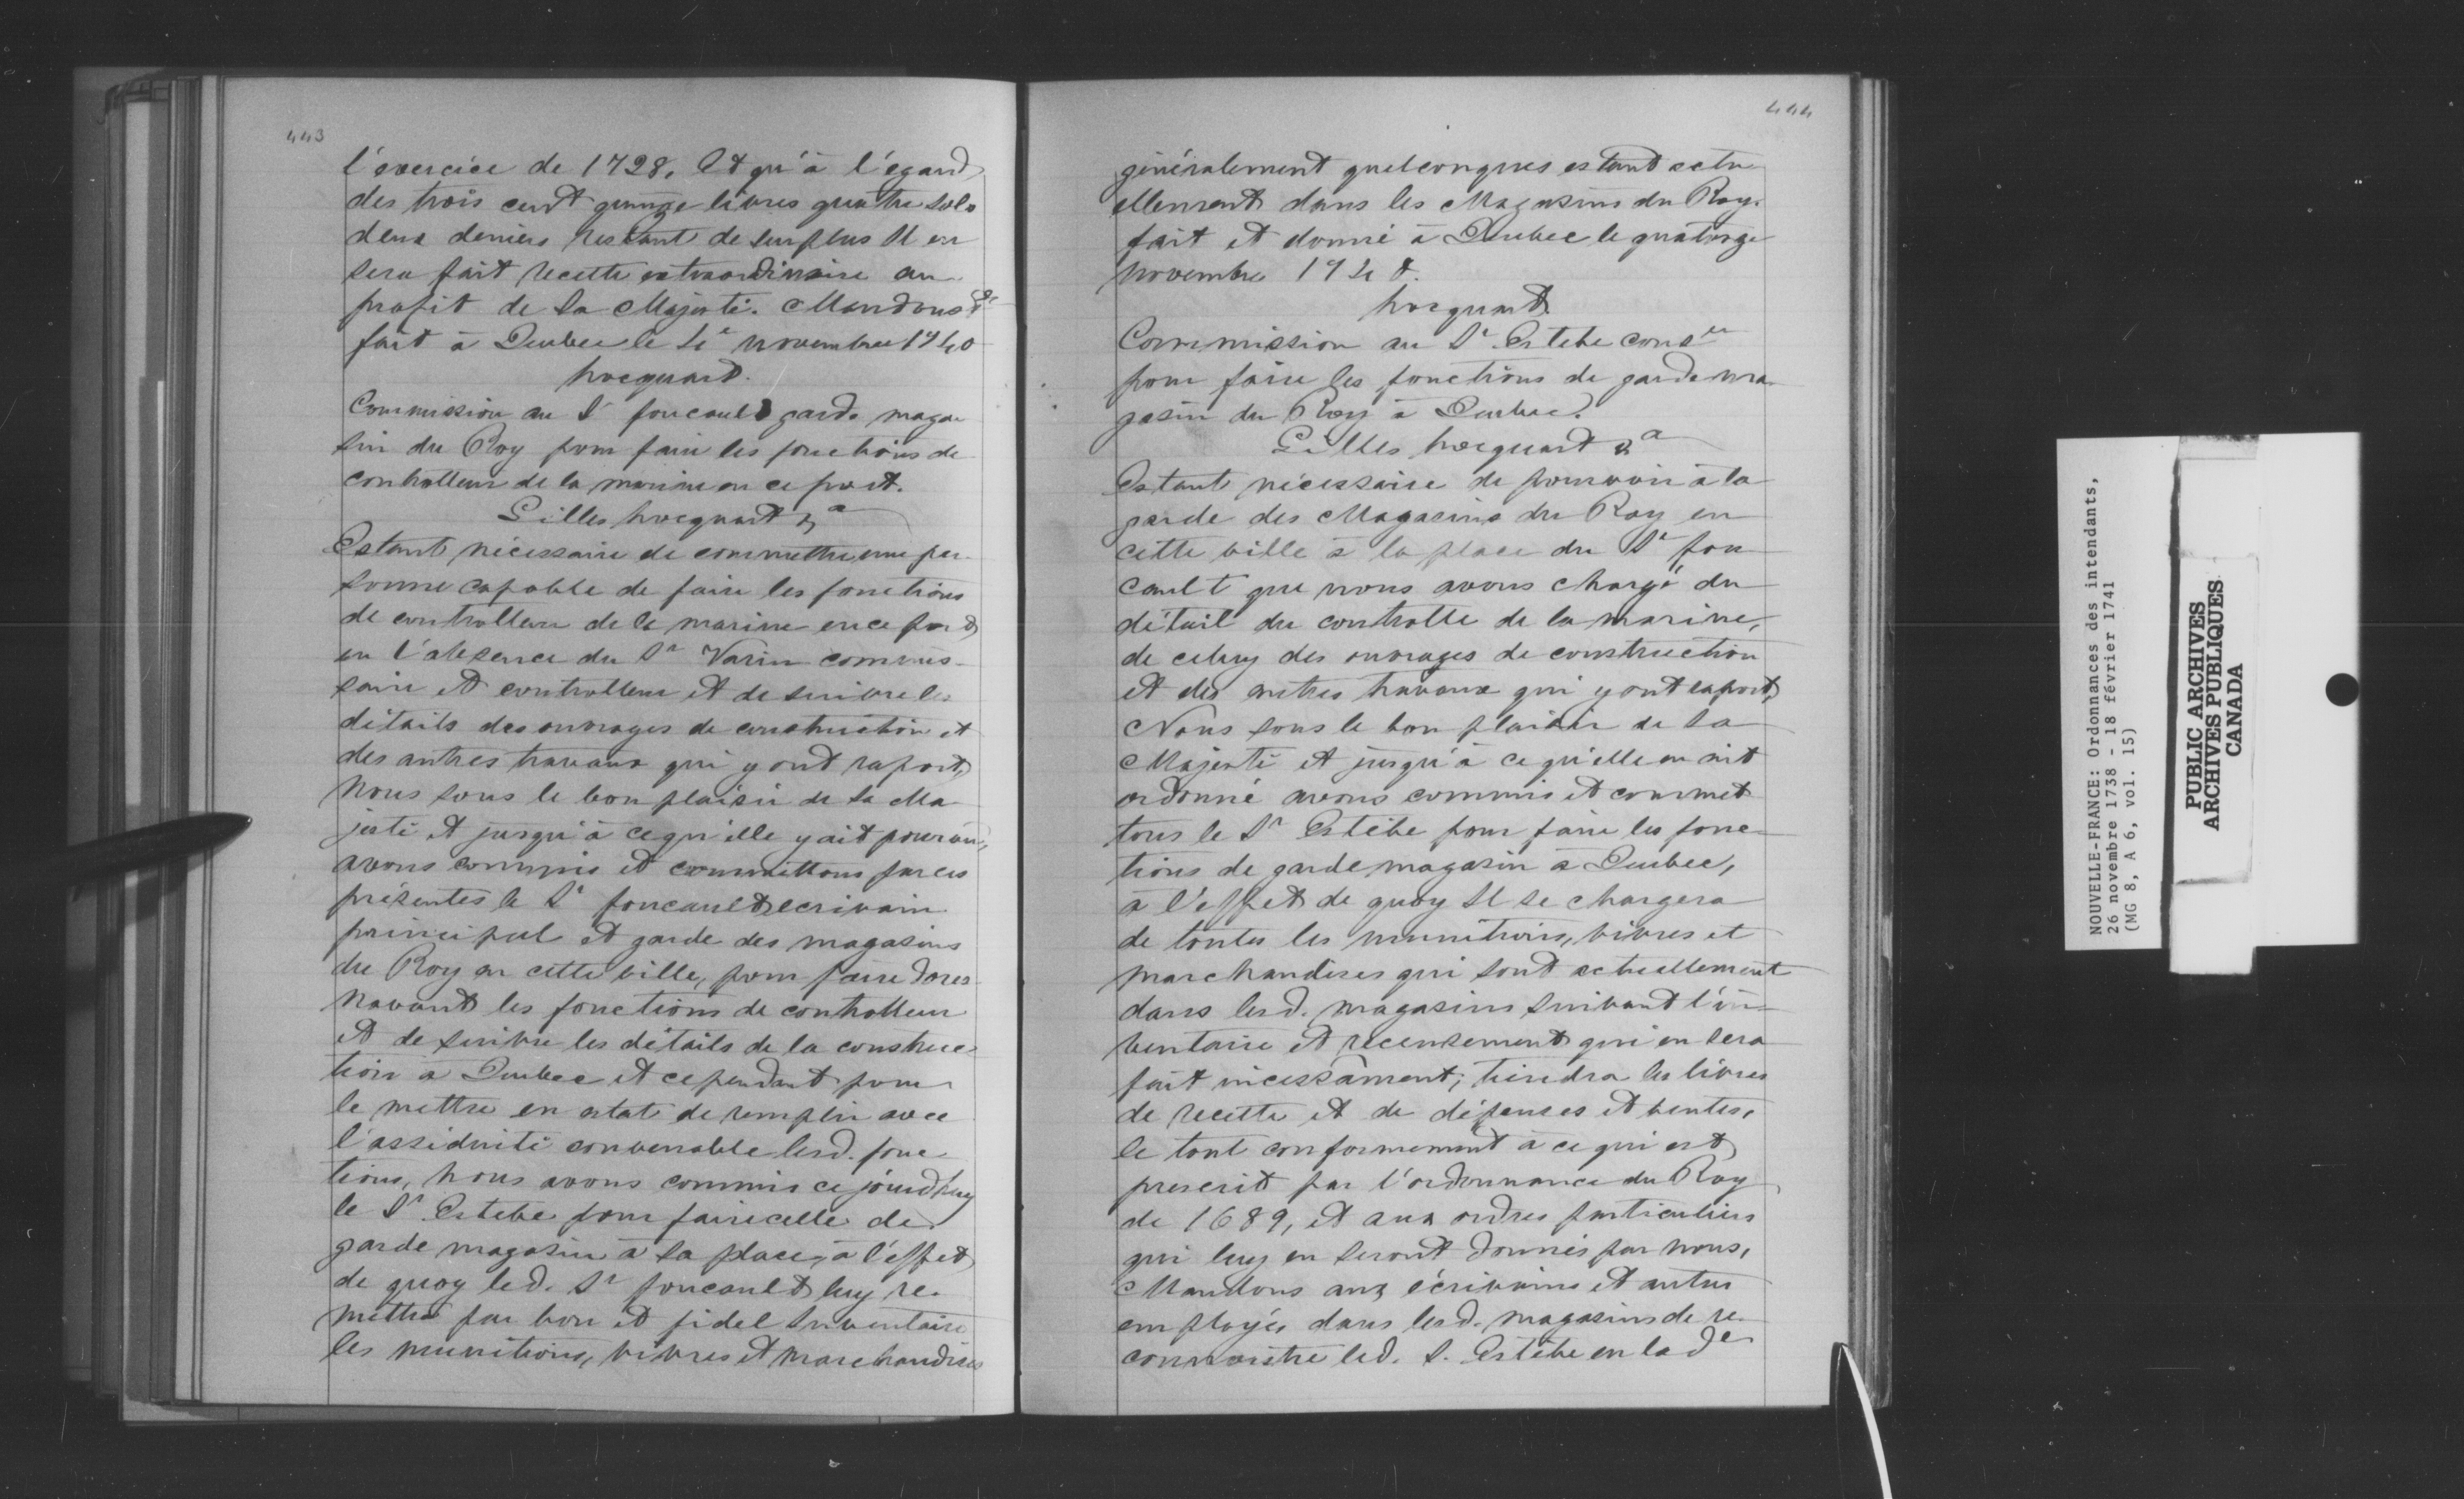 443
l'exercice de 1728, Et qu'à l'égard
des trois cent quinze livres quatre sols
deux deniers restant de surplus Il en
sera fait recette extraordinaire au
profit de Sa Majesté. Mandons &c
fait à Quebec le 4e novembre 1740
hocquart.
Commission au Sr foucault garde maga
sin du Roy pour faire les fonctions de
controlleur de la marine en ce port.
Gilles hocquart &a
Estant nécessaire de commettre une per-
sonne capable de faire les fonctions
de controlleur de la marine en ce port
en l'absence du Sr Varin commis-
saire et controlleur et de suivre les
détails des ouvrages de construction et
des autres travaux qui y ont raport,
Nous sous le bon plaisir de Sa Ma
jesté et jusqu'à ce qu'elle y ait pourvu,
avons commis et commettons par ces
présentes le Sr foucault ecrivain
principal et garde des magasins
du Roy en cette ville, pour faire dores-
navant les fonctions de controlleur
et de suivre les détails de la construc-
tion à Quebec et cependant pour
le mettre en estat de remplir avec
l'assiduité convenable lesd. fonc
tions, nous avons commis ce jourd'huy
le Sr Estebe pour faire celle de
garde magasin à sa place, à l'effet
de quoy led. Sr foucault luy re-
mettra par bon et fidel Inventaire
les munitions, vivres et marchandises
444
généralement quelconques estant actu
ellement dans les Magasins du Roy.
fait et donné à Quebec le quatorze
novembre 1740.
hocquart
Commission au Sr Estebe conser
pour faire les fonctions de garde ma-
gasin du Roy à Quebec.
Gilles hocquart &a
Estant nécessaire de pourvoir à la
garde des Magasins du Roy en
cette ville à la place du Sr fou
cault que nous avons chargé du
détail du controlle de la marine,
de celuy des ouvrages de construction
et des autres travaux qui y ont raport,
Nous sous le bon plaisir de Sa
Majesté et jusqu'à ce qu'elle en ait
ordonné avons commis et commet
tons le Sr Estèbe pour faire les fonc-
tions de garde magasin à Quebec,
à l'effet de quoy Il se chargera
de toutes les munitions, vivres et
marchandises qui sont actuellement
dans lesd. magasins suivant l'in-
ventaire et recensement qui en sera
fait incessament; tiendra les livres
de recette et de dépenses et ventes,
le tout conformement à ce qui est
prescrit par l'ordonnance du Roy
de 1689, et aux ordres particuliers
qui luy en seront donnés par nous,
Mandons aux écrivains et autres
employés dans lesd. magasins de re-
connoistre led. S. Estèbe en lade
NOUVELLE-FRANCE: Ordonnances des intendants,
26 novembre 1738 - 18 février 1741
(MG 8, A 6, vol. 15)
PUBLIC ARCHIVES
ARCHIVES PUBLIQUES
CANADA